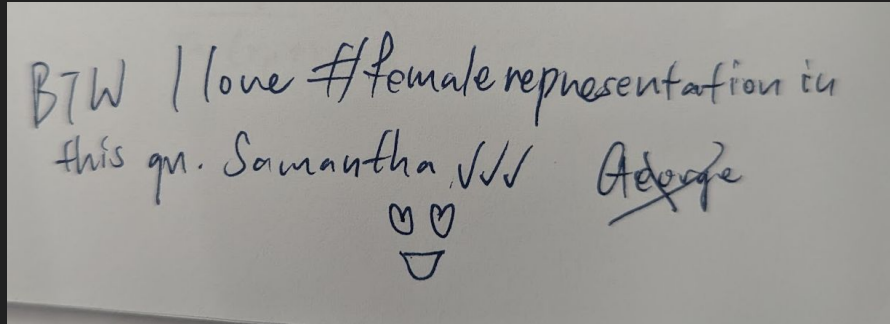 BTW I love #female representation in
this qn. Samantha ✓✓✓ George